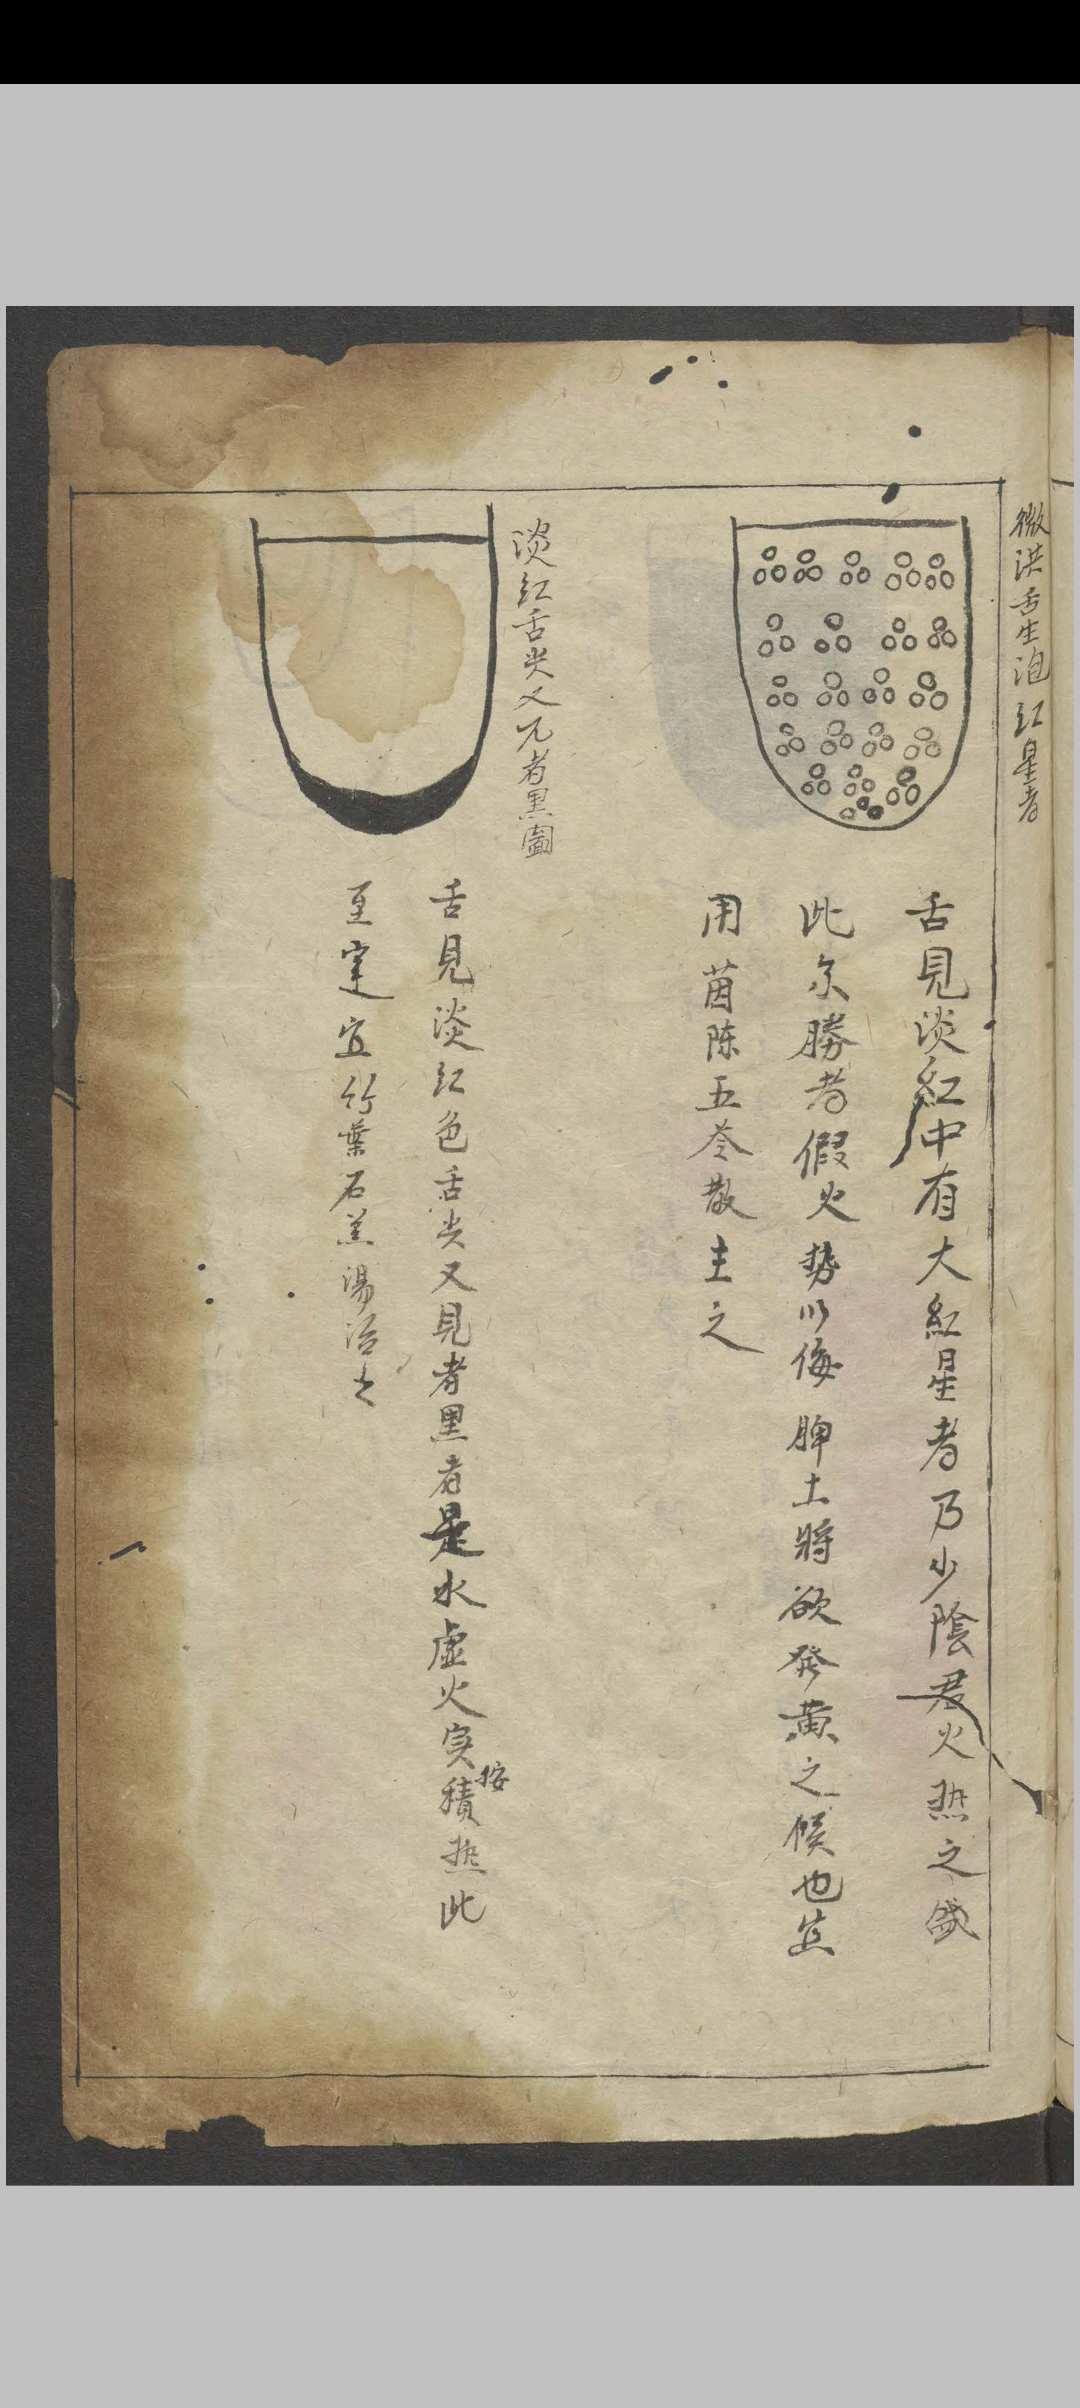 微洪舌生泡紅星者
舌見淡紅中有大紅星者乃少陰君火熱之盛
此尔勝者假火勢以侮脾土將欲發黄之候也宜
用茵陈五苓散主之
淡紅舌尖又兀者黒圖
舌見淡紅色舌尖又見者黒者是水虚火实積热此
按
至 宜竹葉石羔湯治之